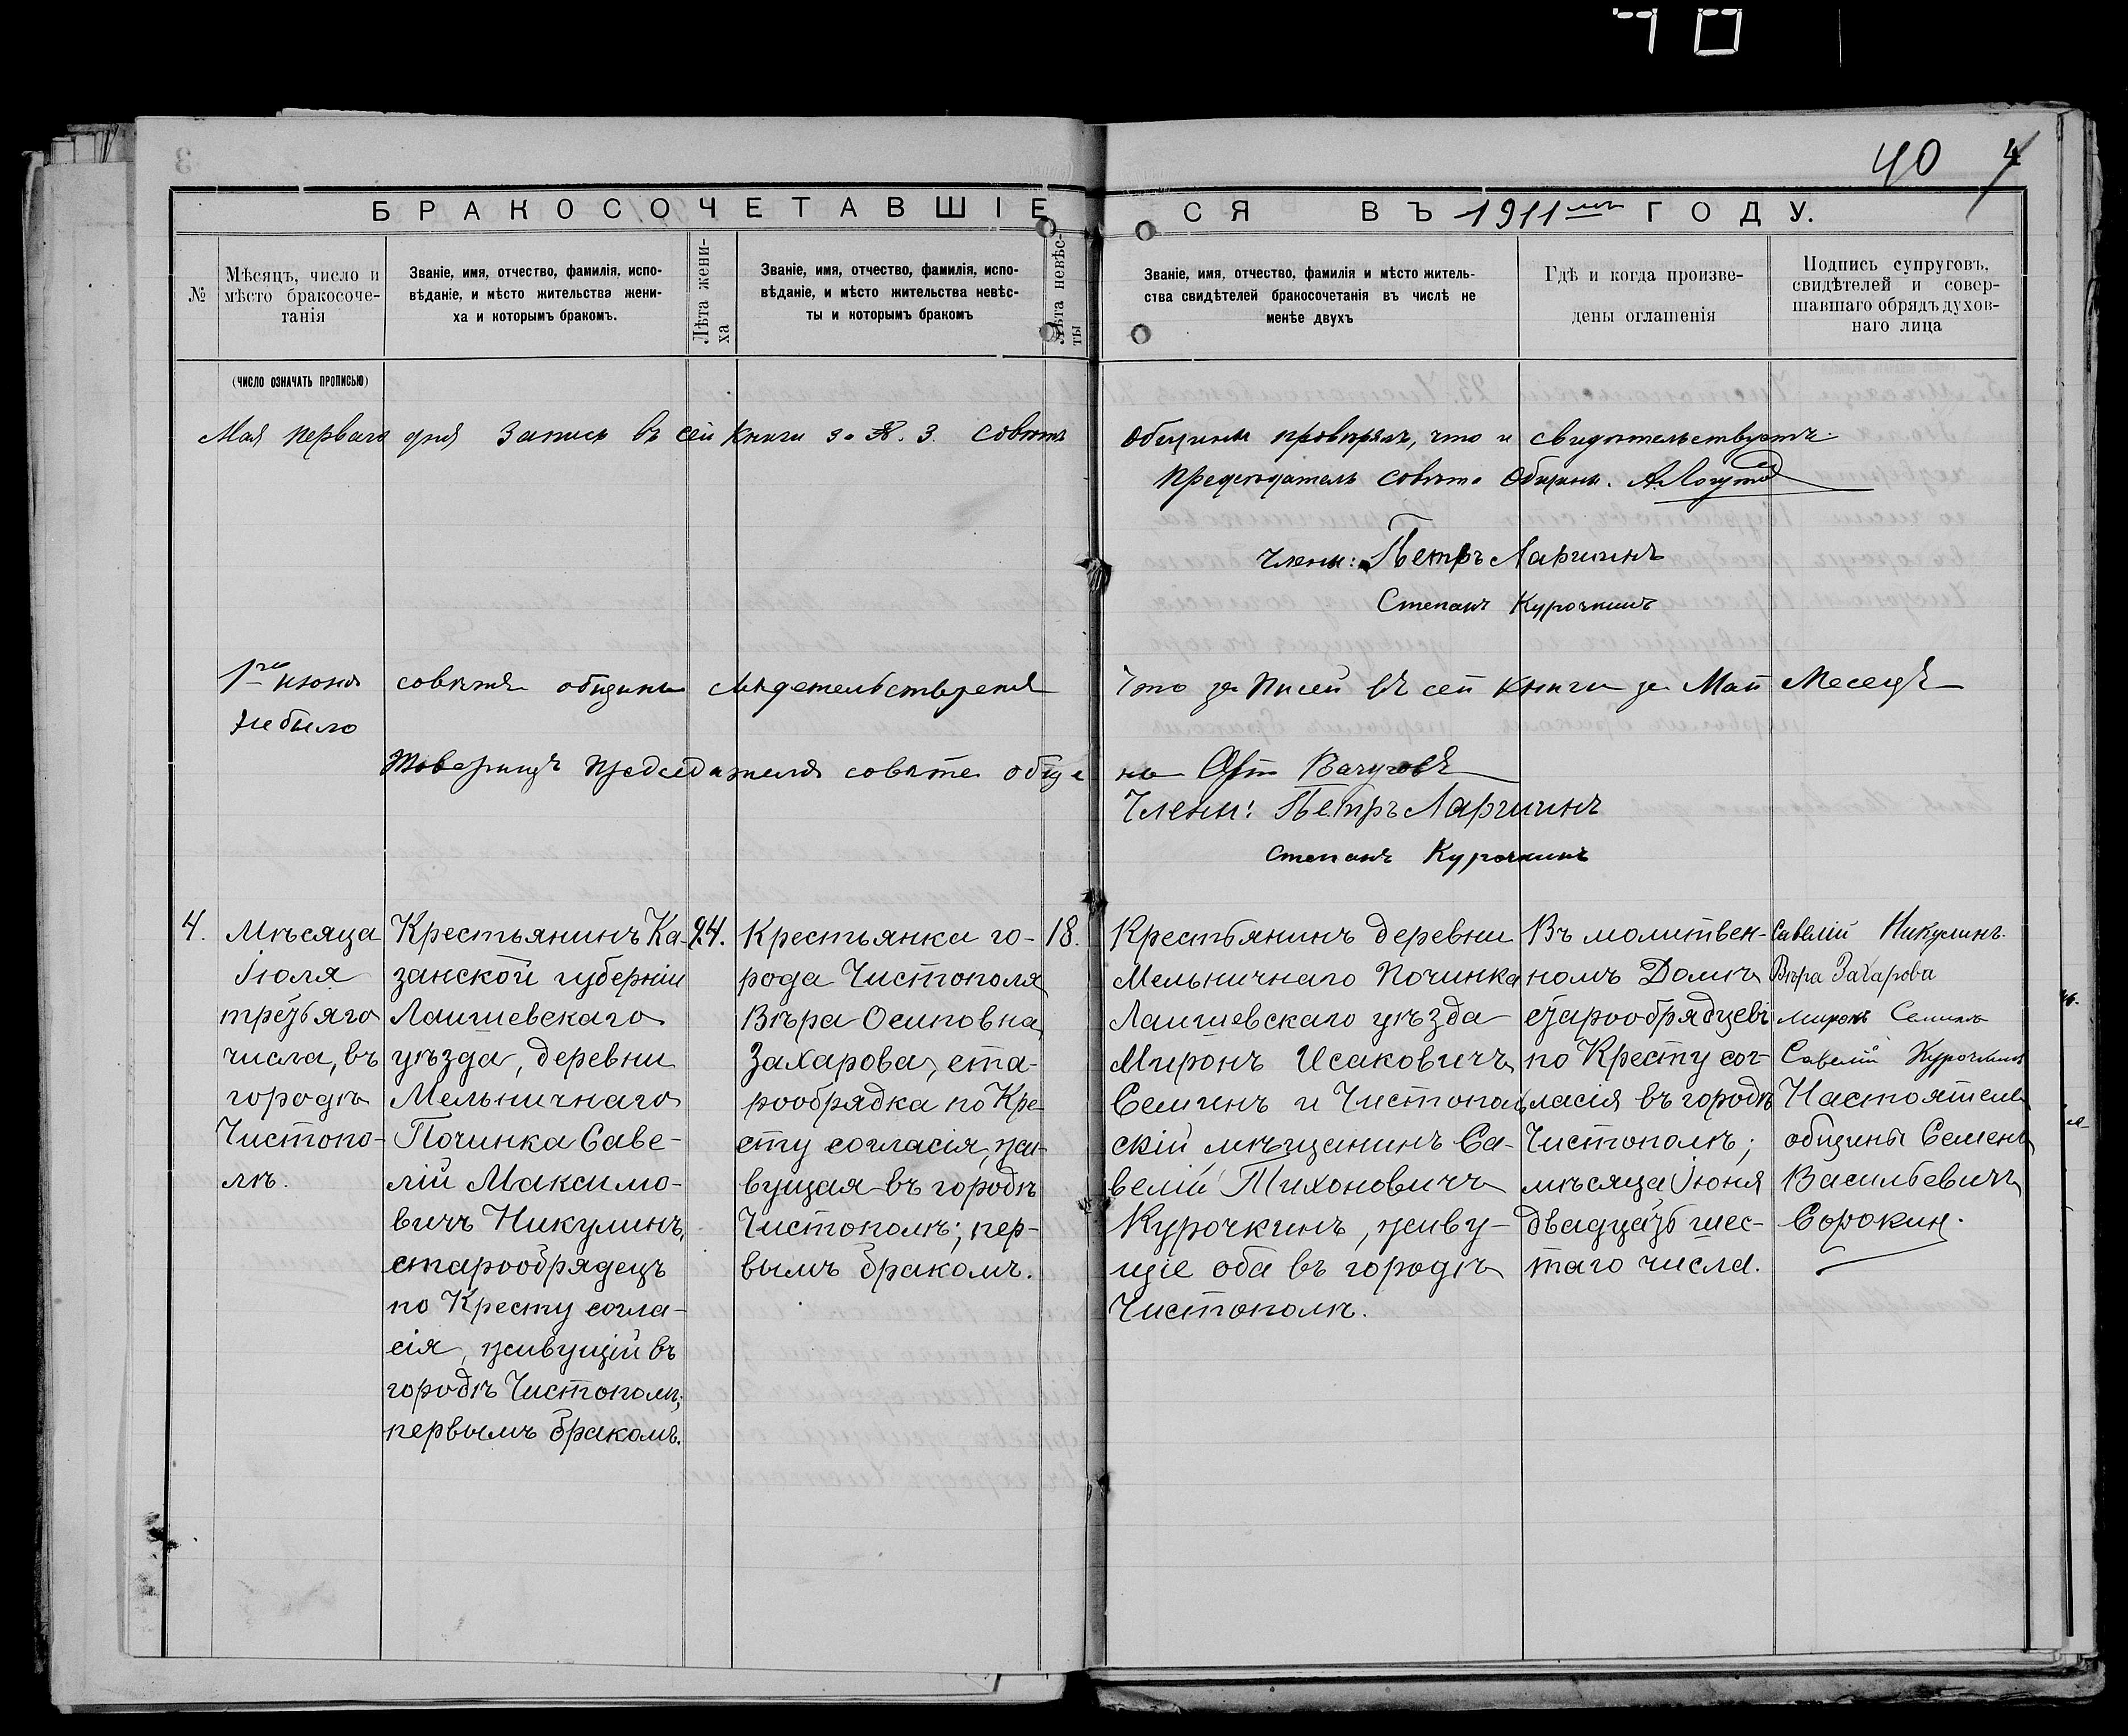 40
40 4
3
БРАКОСОЧЕТАВШІЕСЯ ВЪ 1911мъ ГОДУ.
№
Мѣсяцъ, число и
мѣсто бракосоче-
танія
Званіе, имя, отчество, фамилія, испо-
вѣданіе, и мѣсто жительства жени-
ха и которымъ бракомъ.
Лѣта жени-
ха
Званіе, имя, отчество, фамилія, испо-
вѣданіе, и мѣсто жительства невѣс-
ты и которымъ бракомъ
Лѣта невѣс-
ты
Званіе, имя, отчество, фамилія и мѣсто житель-
ства свидѣтелей бракосочетанія въ числѣ не
менѣе двухъ
Гдѣ и когда произве-
дены оглашенія
Подпись супруговъ,
свидѣтелей и совер-
шавшаго обрядъ духов-
наго лица
(ЧИСЛО ОЗНАЧАТЬ ПРОПИСЬЮ)
Мая перваго дня Запись въ сей книги за № 3. совѣтъ Общины провѣрялъ, что и свидѣтельствуетъ
Предсѣдатель совѣта Общины. А. Логутов
Члены: Петръ Ларшинъ
Степанъ Курочкинъ
1го июня совѣтъ общины что за писей въ сей книги за Май Месецъ
не было
Товарищъ председателя совѣта общины
Члены: Петръ Ларшинъ
Степанъ Курочкинъ
4.
Мѣсяца
Іюля
третьяго
числа, въ
городѣ
Чистопо-
лѣ.
Крестьянинъ Ка-
занской губерніи
Лаишевскаго
уѣзда, деревни
Мельничнаго
Починка Саве-
лій Максимо-
вичъ Никулинъ,
старообрядецъ
по Кресту согла-
сія, живущій въ
городѣ Чистополѣ;
первымъ бракомъ.
24.
Крестьянка го-
рода Чистополя
Вѣра Осиповна
Захарова, ста-
рообрядка по Кре-
сту согласія, жи-
вущая въ городѣ
Чистополѣ; пер-
вымъ бракомъ.
18.
Крестьянинъ деревни
Мельничнаго Починка
Лаишевскаго уѣзда
Миронъ Исаковичъ
Семинъ и Чистополь
скій мѣщанинъ Са-
велій Тихоновичъ
Курочкинъ, живу-
щіе оба въ городѣ
Чистополѣ.
Въ молитвен-
номъ Домѣ
старообрядцевъ
по Кресту сог-
ласія въ городѣ
Чистополѣ;
мѣсяца Іюня
двадцать шес-
таго числа.
Савелій Никулинъ.
Вѣра Захарова
Миронъ Семинъ
Савелій Курочкинъ
Настоятель
общины Семенъ
Васильевичъ
Сорокин.